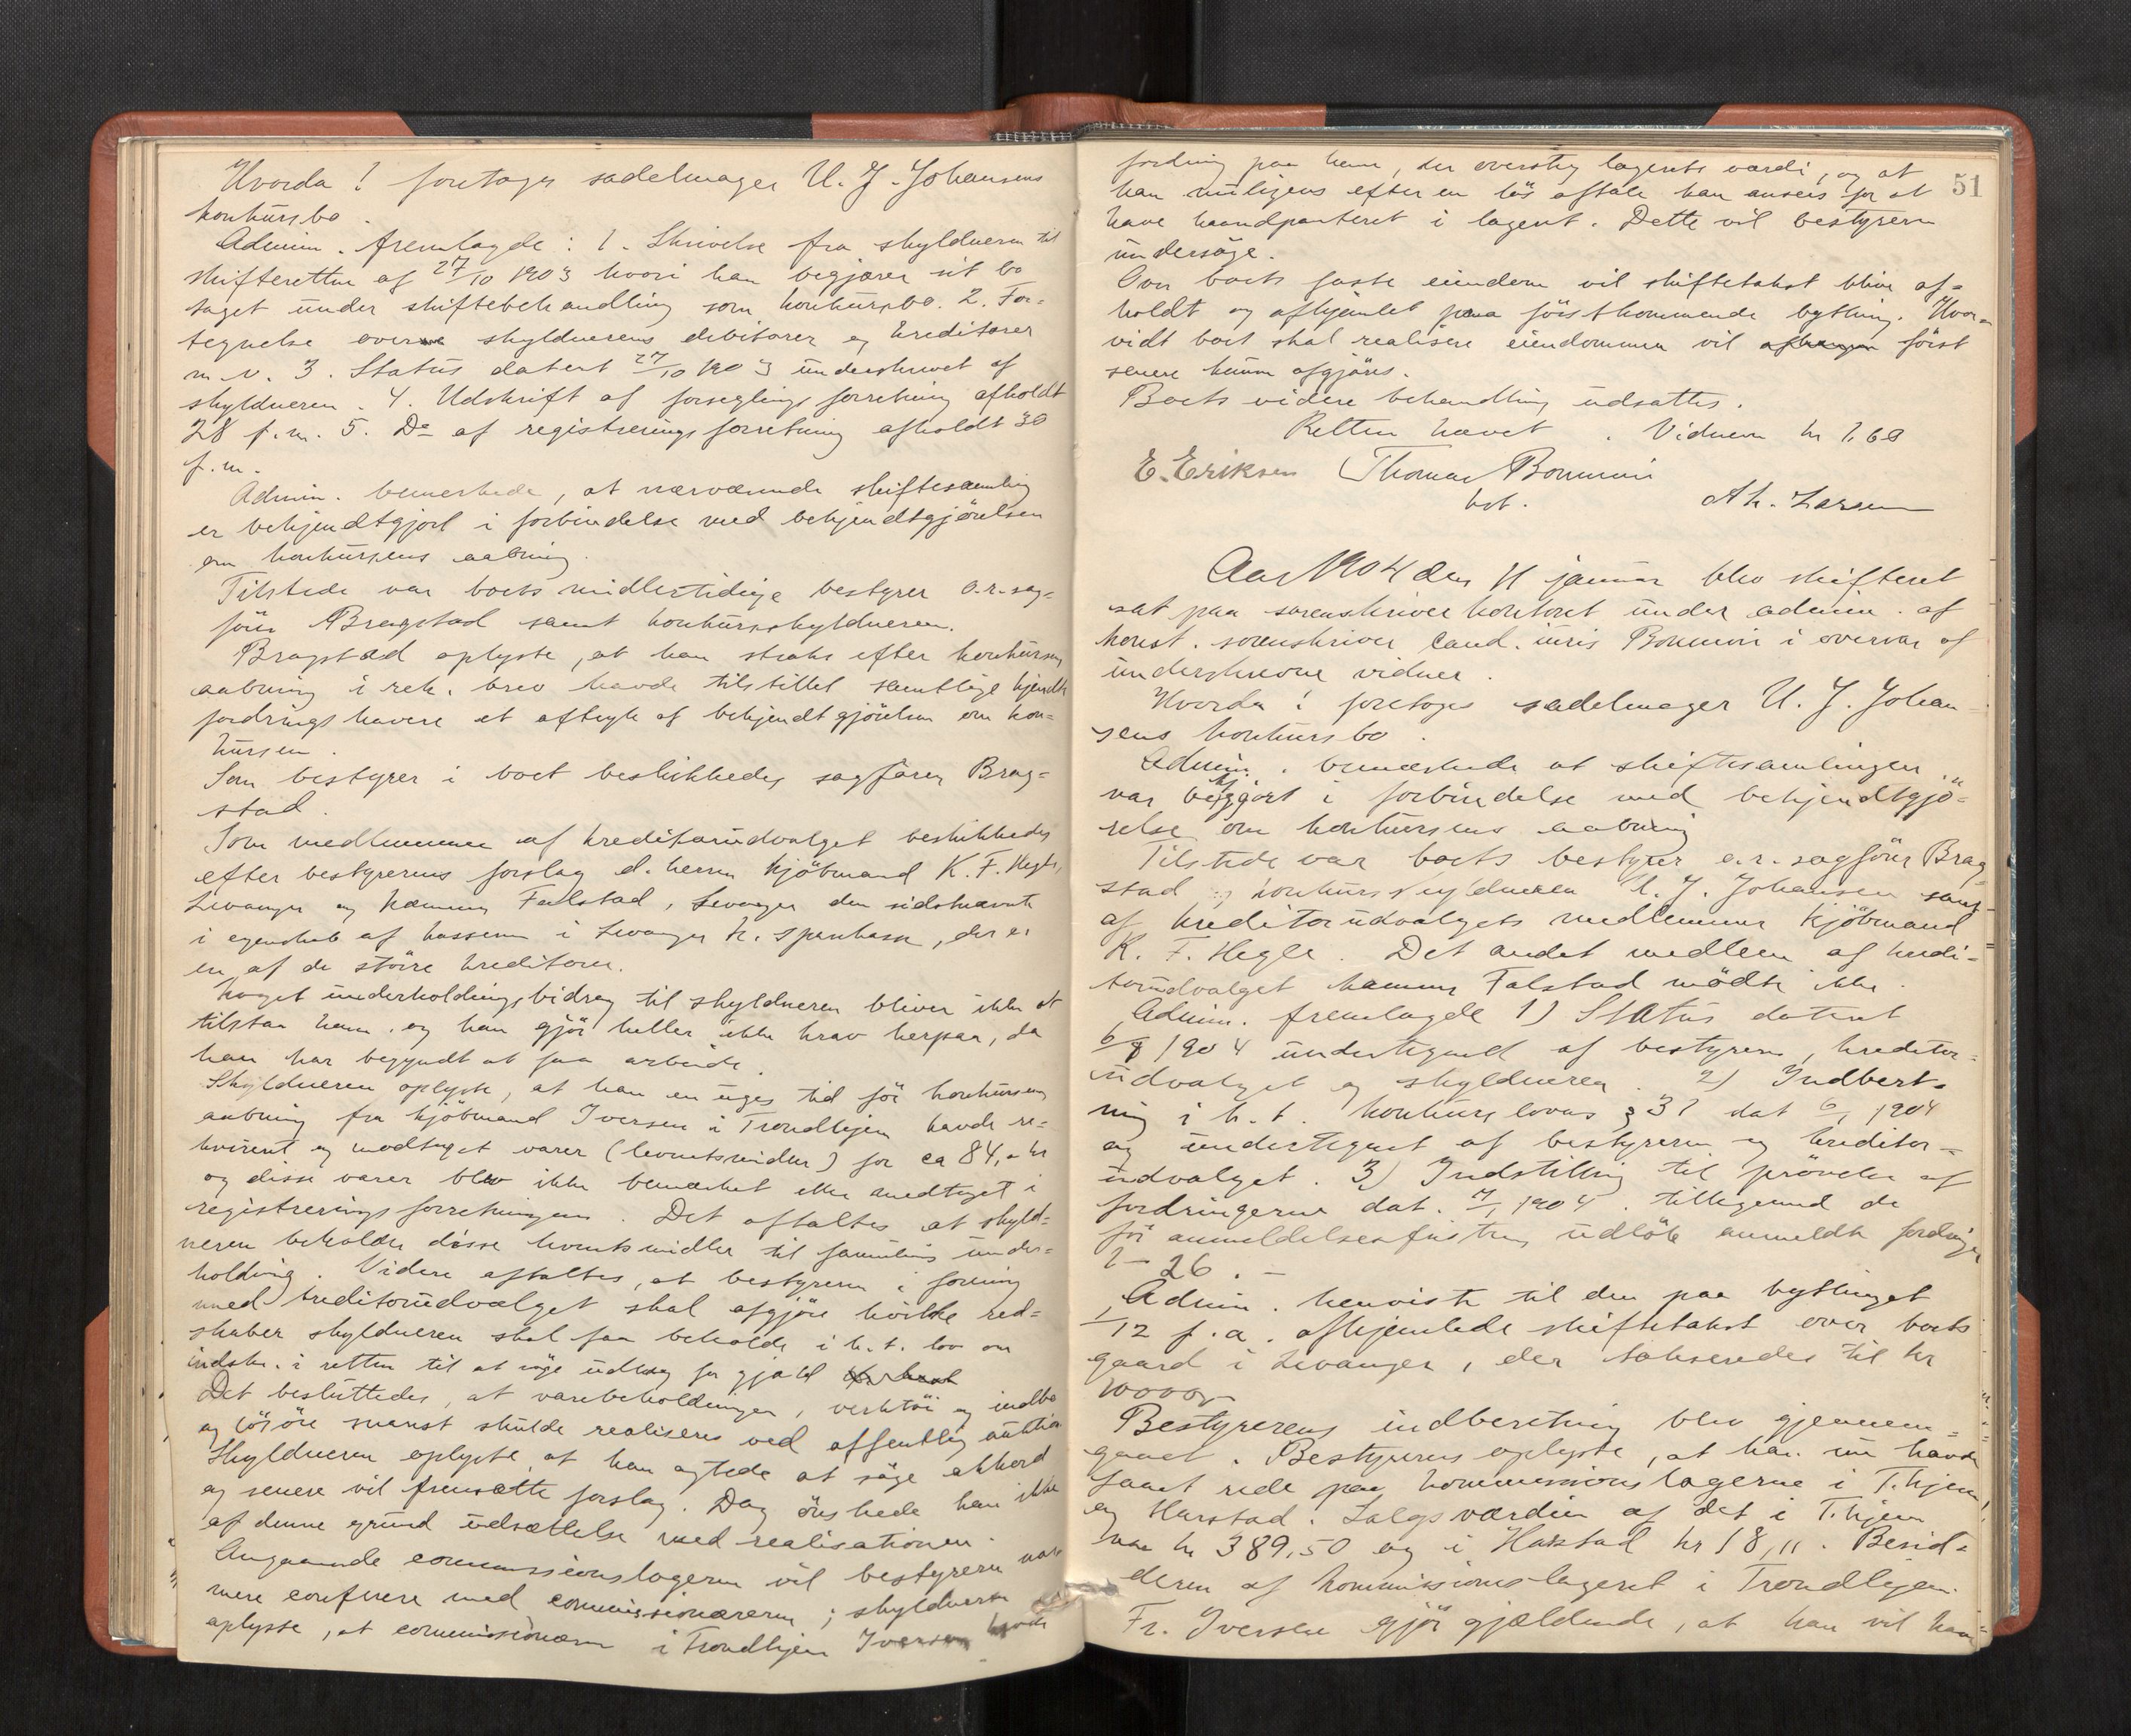 Hvorda! foretages sadelmager U. J. Johansens
konkursbo.
Admin. fremlagde: 1. Skrivelse fra skyldneren til
skifteretten af 27/10 1903 hvori han begjærer sit bo
taget under skiftebehandling som konkursbo. 2. For=
tegnelse over skyldnerens debitorer og kreditorer
m. v. 3. Status datert 27/10 1903 underskrevet af
skyldneren. 4. Udskrift af forseglingsforretning afholdt
28 f.m. 5. Do af registreringsforretning afholdt 30
f.m.
Admin. bemerkede, at nærværende skiftesamling
er bekjendtgjort i forbindelse med bekjendtgjörelsen
om konkursens aabning.
Tilstede var boets midlertidige bestyrer o.r.sag=
förer Bragstad samt konkursskyldneren.
Bragstad oplyste, at han straks efter konkursens
aabning i rek. brev havde tilstillet samtlige kjendte
fordringshavere et aftryk af bekjendtgjörelsen om kon=
kursen.
Som bestyrer i boet beskikkedes sagförer Brag=
stad.
Som medlemmer af kreditorudvalget beskikkedes
efter bestyrerens forslag d.herrer kjöbmand K. F. Hegle,
Levanger og Falstad, Levanger den sidstnævnte
i egenskab af kasserer i Levanger k. sparekasse, der er
en af de större kreditorer.
Noget underholdingsbidrag til skyldneren bliver ikke at
tilstaa ham. og han gjör heller ikke krav herpaa, da
han har begyndt at faa arbeide.
Skyldneren oplyste, at han en uges tid för konkursens
aabning fra kjöbmand Iversen i Trondhjem havde re=
kvireret og modtaget varer (levnetsmidler) for ca 84,- kr
og disse varer blev ikke bemærket eller medtaget i
registreringsforretningen. Det aftaltes at skyld=
neren beholder disse levnetsmidler til familiens under=
holdning. Videre aftaltes, at bestyreren i forening
med kreditorudvalget skal afgjöre hvilke red=
skaber skyldneren skal faa beholde i h. t. lov om
indskr. i retten til at söge udlæg for gjæld
Det besluttedes, at varebeholdningen, verktöi og indbo
og lösöre snarest skulde realiseres ved offentlig auktion
Skyldneren oplyste, at han agtede at söge akkord
og senere vil fremsætte forslag. Dog önskede han ikke
af denne grund udsættelse med realisationen.
Angaaende commissionslagerne vil bestyreren nær
mere conferere med commissionærerne; skyldneren
oplyste, at commissionæren i Trondhjem Iversen havde
51
fordring paa ham, der oversteg lagerets værdi, og at
han muligens efter en lös aftale kan ansees for at
have haandpanteret i lageret. Dette vil bestyreren
undersöge.
Over boets faste eiendom vil skiftetakst blive af=
holdt og afhjemlet paa förstkommende bything. Hvor=
vidt boet skal realisere eiendommen vil först
senere kunne afgjöres.
Boets videre behandling udsattes.
Retten hævet. Vidnern kr 1.60
E. Eriksen Thomas Bonnevie
kst. Ah. Larsen
Aar 1904 den 11 januar blev skifteret
sat paa sorenskriverkontoret under admin. af
konst. sorenskriver cand. juris Bonnevie i overvær af
underskrevne vidner.
Hvorda! foretoges sadelmager U. J. Johan=
sens konkursbo.
Admin. bemærkede at skiftesamlingen
var bekjgjort i forbindelse med bekjendtgjö=
relse om konkursens aabning
Tilstede var boets bestyrer o.r. sagförer Brag=
stad og konkursskyldneren U. J. Johansen samt
af kreditorudvalgets medlemmer kjöbmand
K. F. Hegle. Det andet medlem af kredi=
torudvalget Falstad mödte ikke.
Admin. fremlagde 1) Status datert
6/1 1904 undertegned af bestyreren, kreditor=
udvalget og skyldneren. 2) Indberet=
ning i h. t. konkurslovens § 31 dat 6/1 1904
og undertegnet af bestyreren og kreditor=
udvalget. 3) Indstilling til prövelse af
fordringerne dat. 7/1 1904. tilligemed de
för anmeldelsesfristens udlöb anmeldte fordringer
1-26.-
Admin. henviste til den paa bythinget
1/12 f.a. afhjemlede skiftetakst over boets
gaard i Levanger, der takseredes til kr
10000,-
Bestyrerens indberetning blev gjennem=
gaaet. Bestyreren oplyste, at han nu havde
faaet rede paa kommissionslagerne i T.hjem
og Harstad. Salgsværdien af det i T.hjem
var kr 389,50 og i Harstad kr 18,11. Besid=
deren af kommissionslageret i Trondhjem
Fr. Iversen gjör gjældende, at han vil have